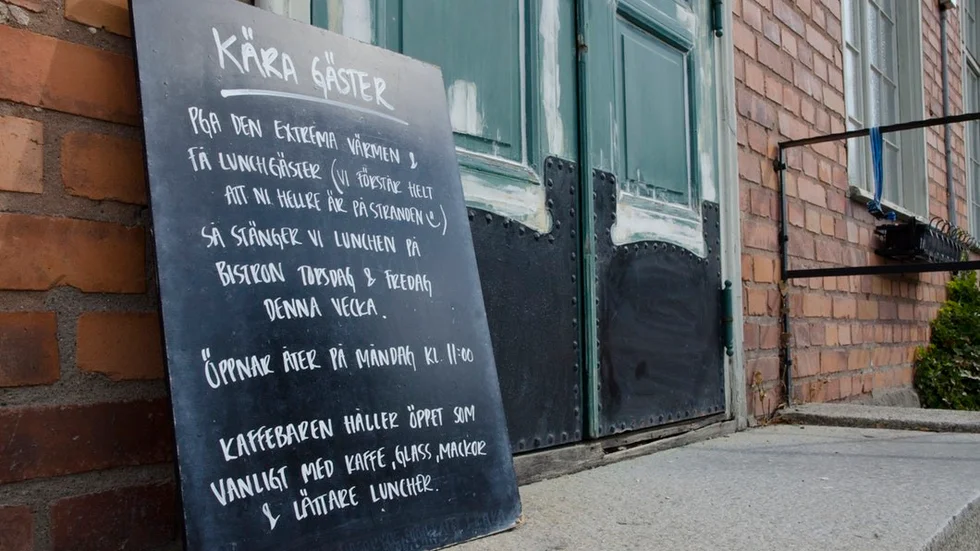 KÄRA GÄSTER
PGA DEN EXTREMA VÄRMEN &
FÅ LUNCHGÄSTER (VI FÖRSTÅR HELT
ATT NI HELLRE ÄR PÅ STRANDEN :))
SÅ STÄNGER VI LUNCHEN PÅ
BISTRON TORSDAG & FREDAG
DENNA VECKA.
ÖPPNAR ÅTER PÅ MÅNDAG KL. 11:00
KAFFEBAREN HÅLLER ÖPPET SOM
VANLIGT MED KAFFE, GLASS, MACKOR
& LÄTTARE LUNCHER.